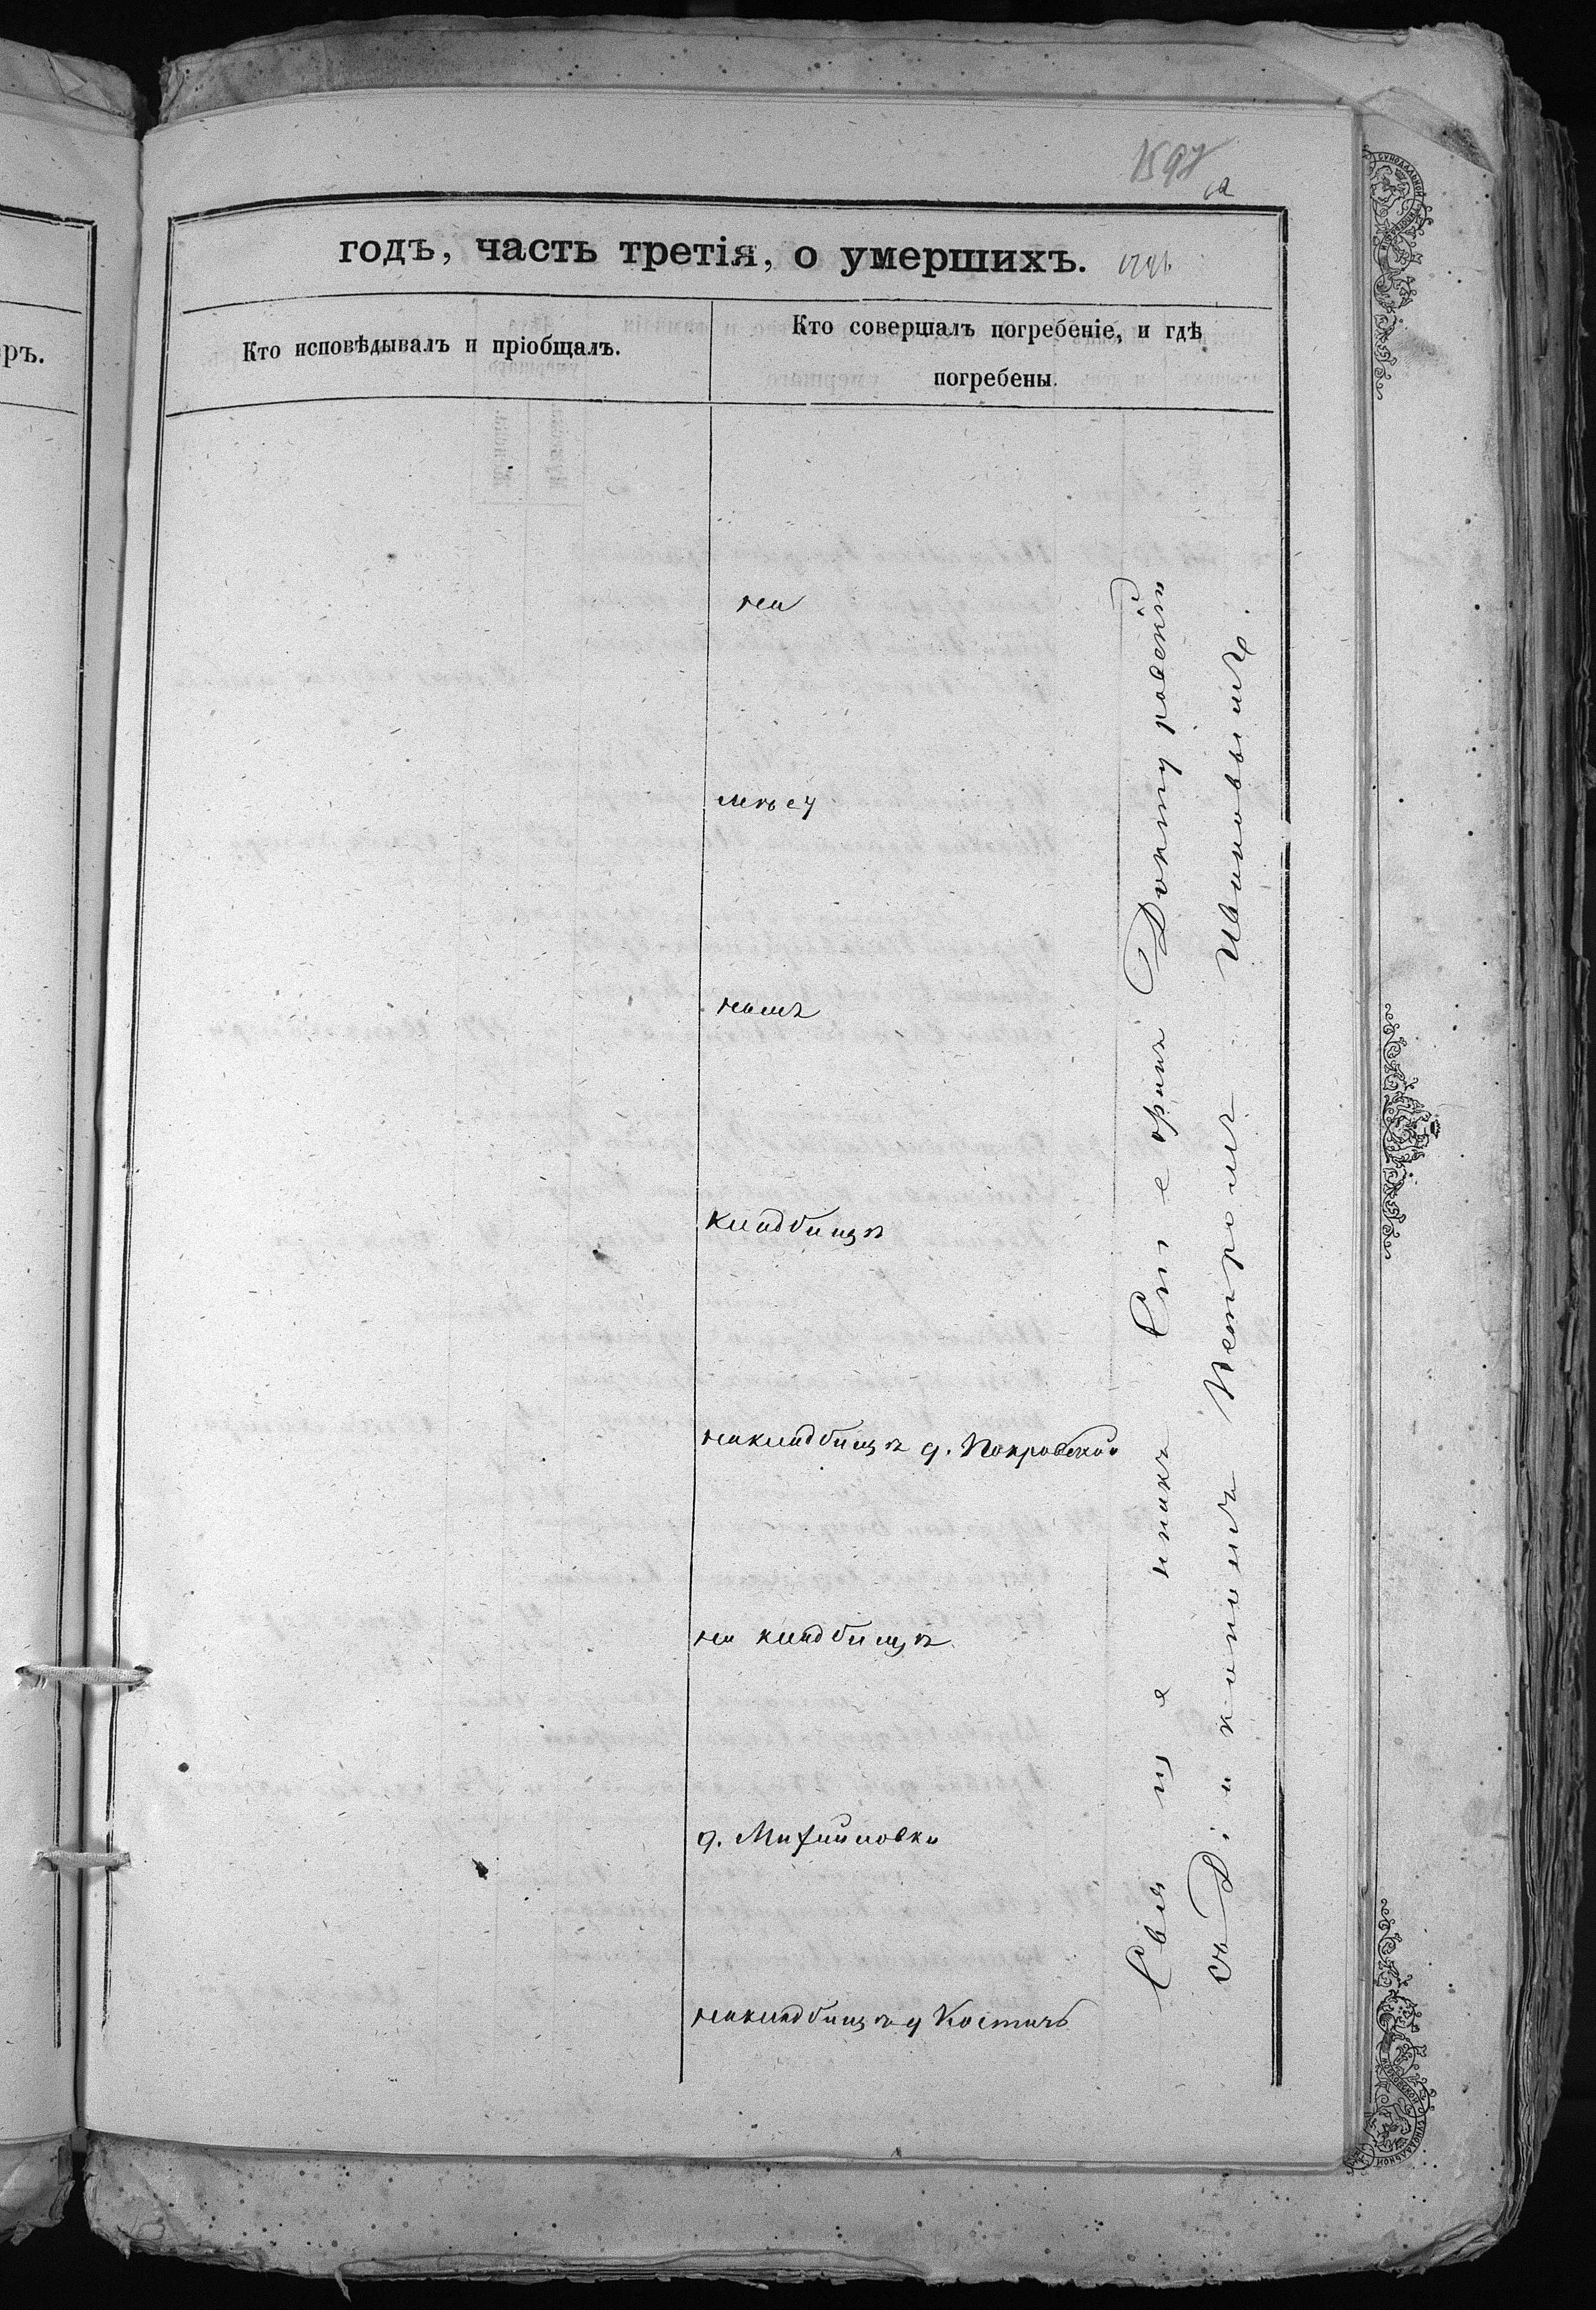 1597
годъ, часть третія, о умершихъ.
Кто исповѣдывалъ и пріобщалъ.
Кто совершалъ погребеніе, и гдѣ
погребены.
ръ.
на
мѣсч
номъ
кладбищѣ
накладбищѣ д. Покровской
на кладбищѣ
д. Михайловки
накладбищѣ д Костичь
Священникъ Димитровскій
съ Діакономъ Петромъ Ивановымъ.